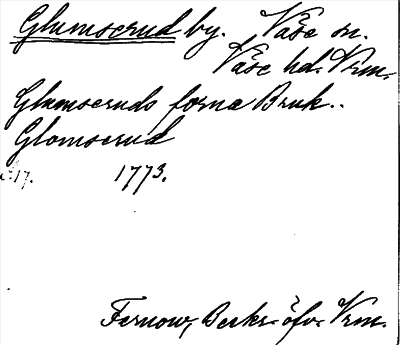 Glumserud by. Väse sn.
Väse hd. Vrm.
Glumseruds forna Bruk..
Glomserud
s. 17. 1773.
Fernow, Beskr. öfv. Vrm.